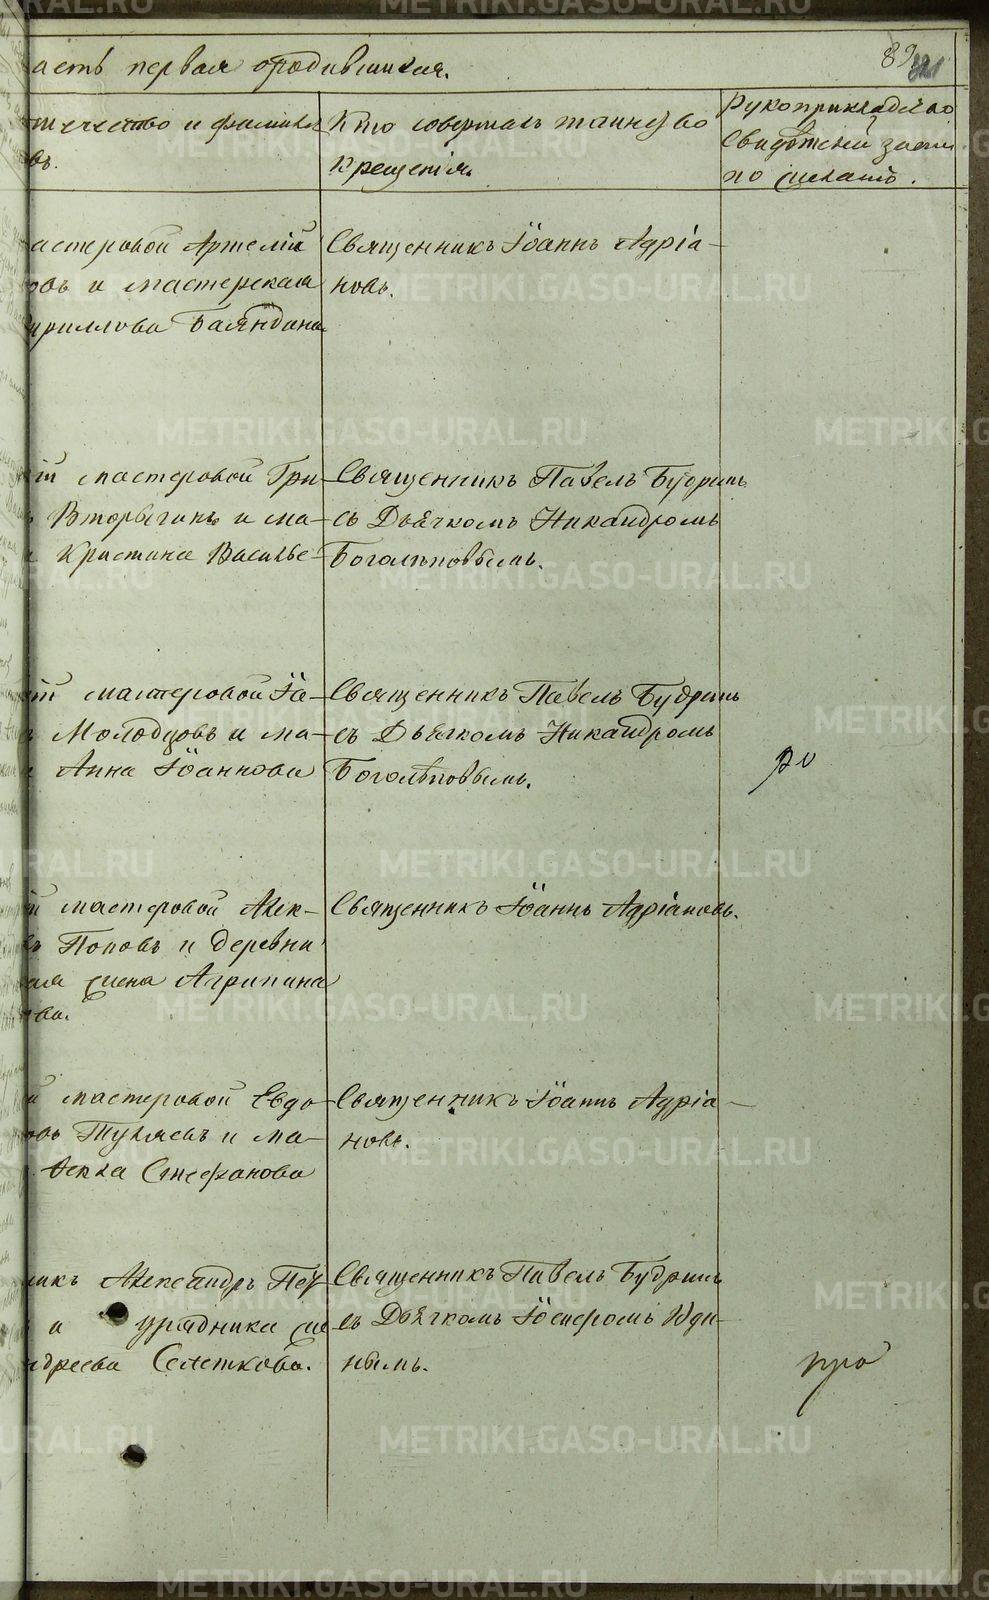 асть первая о родившихся.
89
отчество и фамилия
въ.
Кто совершалъ таинство
крещенія.
Рукоприкладство
свидѣтелей записи
по желанію.
астеровой Артемій
овъ и мастерская
ириллова Баяндина
Священникъ Іоаннъ Адріа-
новъ.
ій мастеровой Гри-
Вторыгинъ и ма-
Кристина Василье-
Священникъ Павелъ Будринъ
съ Дьячкомъ Никандромъ
Боголѣповымъ.
ій мастеровой Іа-
Молодцовъ и ма-
Анна Іоаннова
Священникъ Павелъ Будринъ
съ Дьячкомъ Никандромъ
Боголѣповымъ.
й мастеровой Алек-
въ Поповъ и деревни
ая жена Агрипина
ова.
Священникъ Іоаннъ Адріановъ.
й мастеровой Евдо-
овъ Тукаевъ и ма-
Ѳекла Стефанова
Священникъ Іоаннъ Адріа-
новъ.
никъ Александръ Пет
а урядника же
ндреева Селеткова.
Священникъ Павелъ Будринъ
съ Дьячкомъ Іосифомъ Юди-
нымъ.
про
METRIKI.GASO-URAL.RU